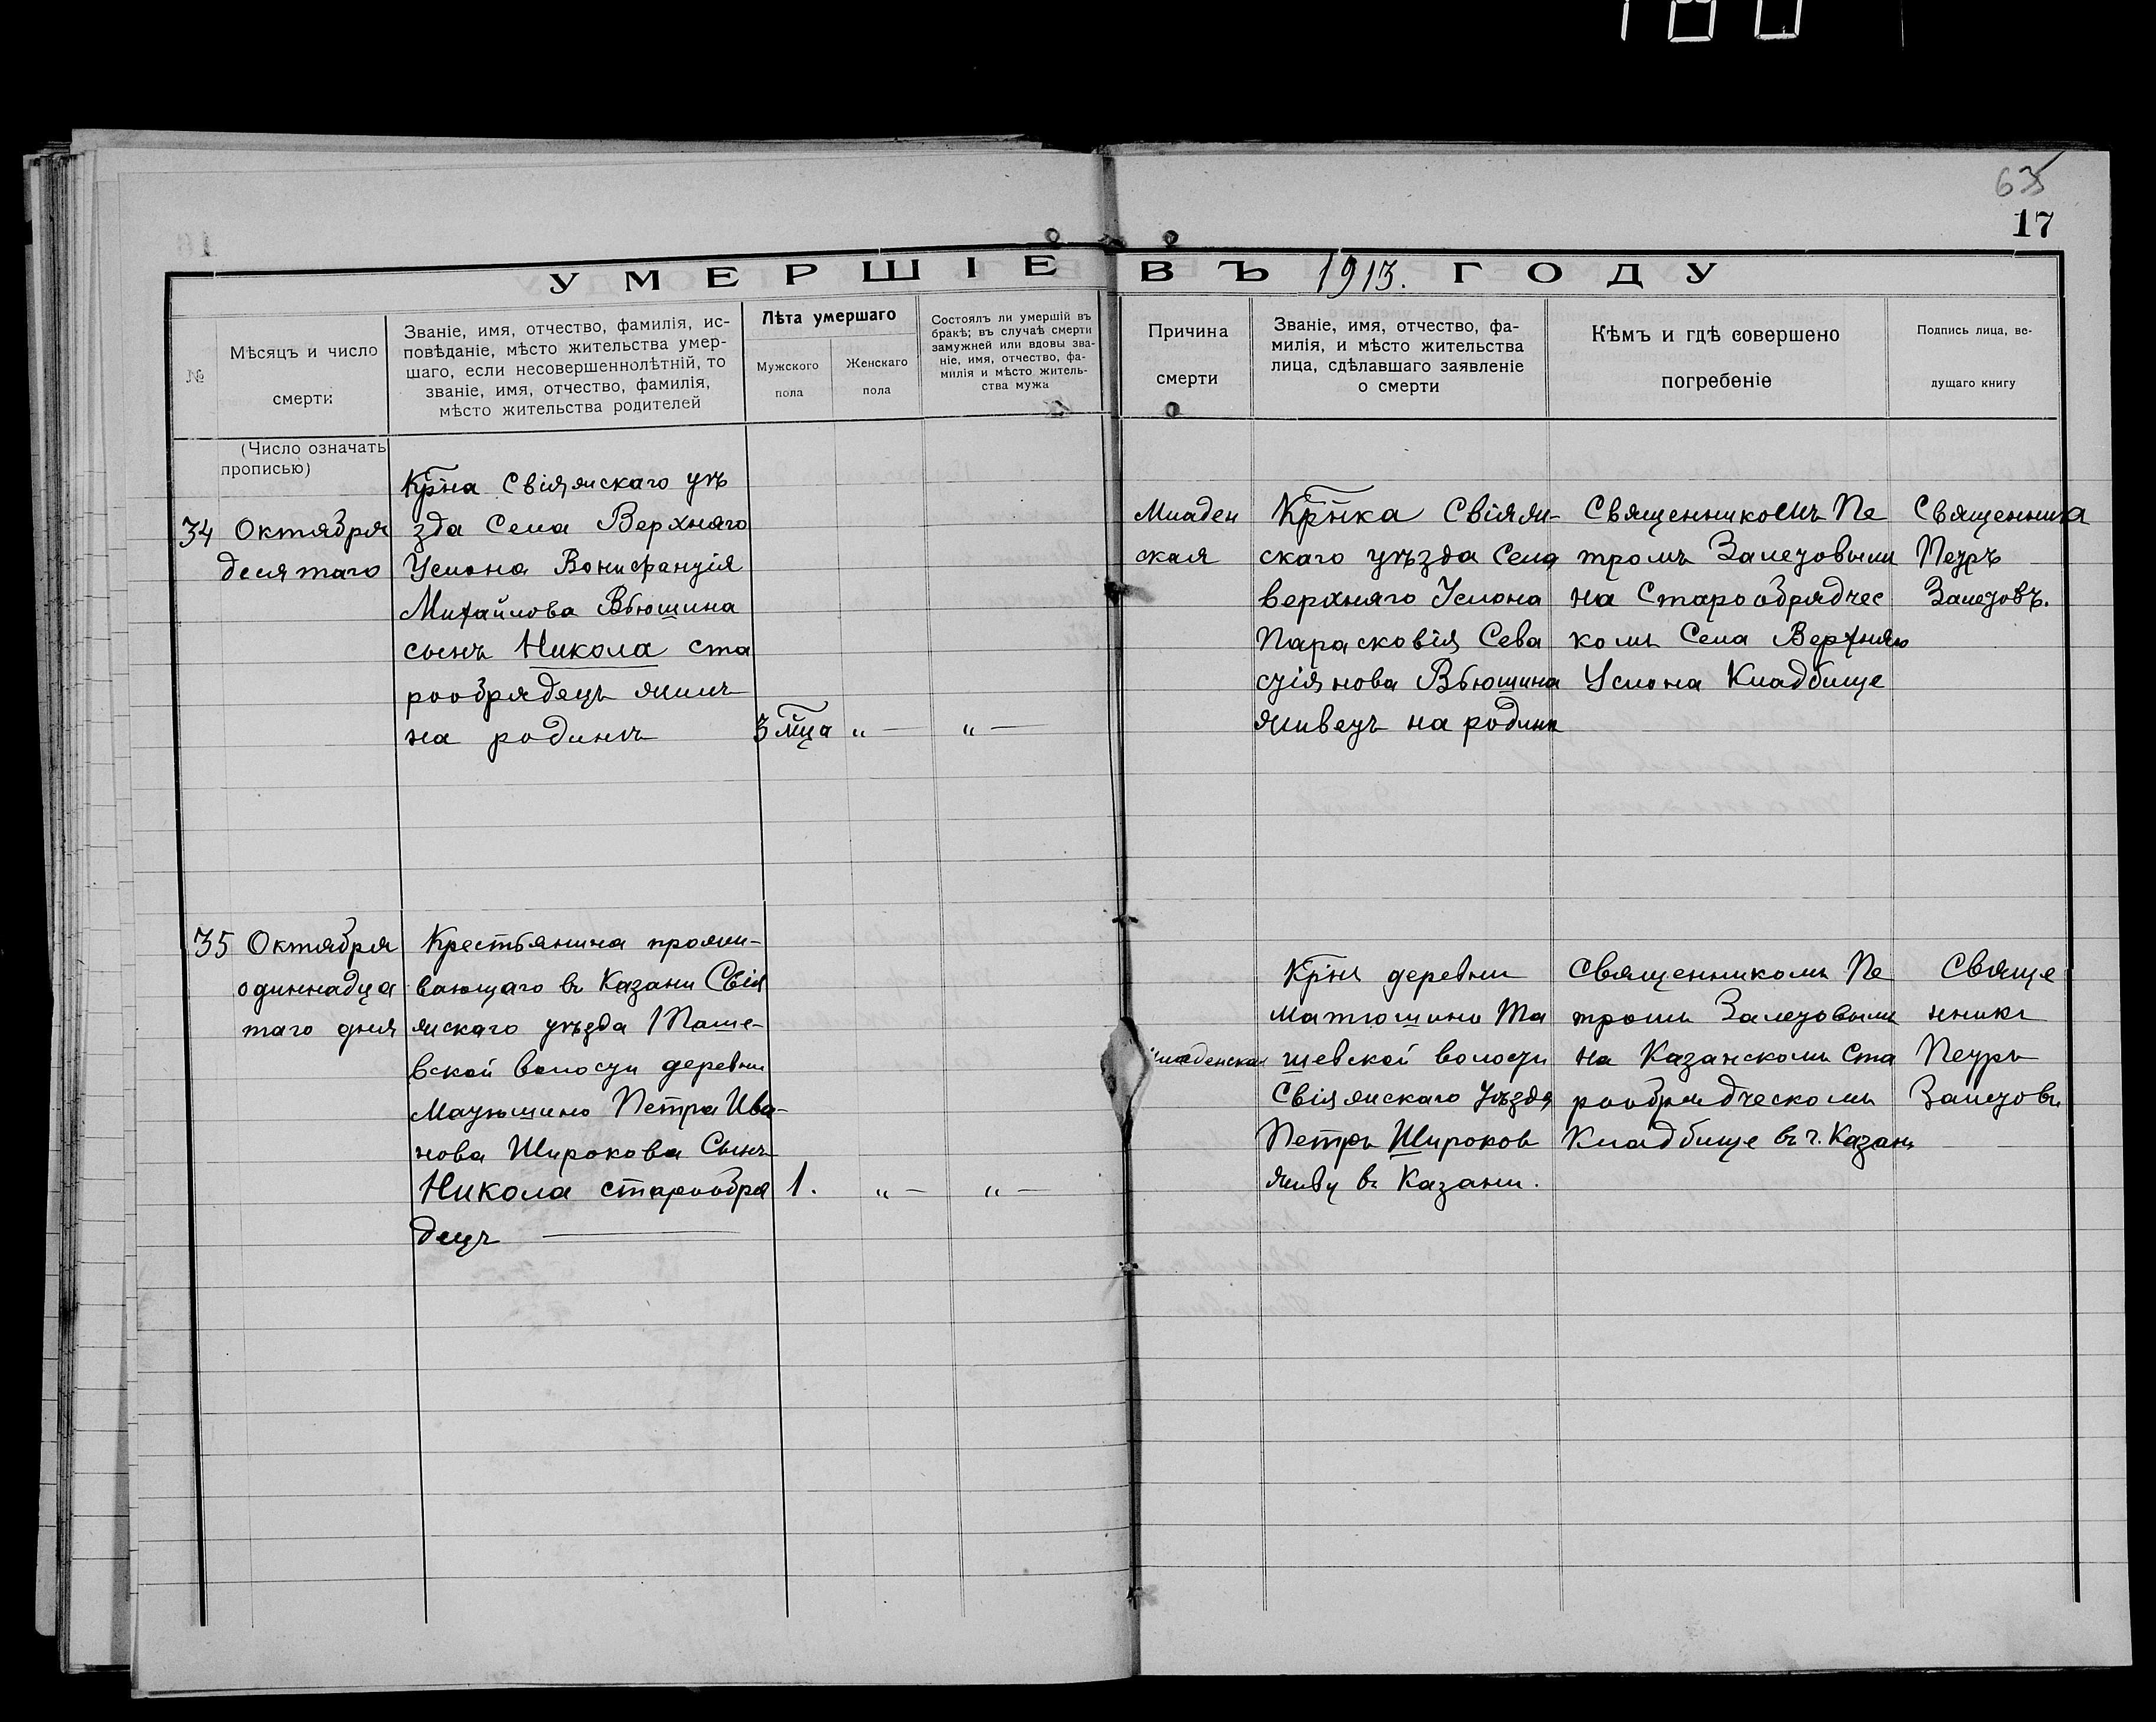 180
63
17
УМЕРШІЕ ВЪ 1913. ГОДУ
№
Мѣсяцъ и число
смерти
Званіе, имя, отчество, фамилія, ис-
повѣданіе, мѣсто жительства умер-
шаго, если несовершеннолѣтній, то
званіе, имя, отчество, фамилія,
мѣсто жительства родителей
Лѣта умершаго
Мужского
пола
Женскаго
пола
Состоялъ ли умершій въ
бракѣ; въ случаѣ смерти
замужней или вдовы зва-
ніе, имя, отчество, фа-
милія и мѣсто житель-
ства мужа
Причина
смерти
Званіе, имя, отчество, фа-
милія, и мѣсто жительства
лица, сдѣлавшаго заявленіе
о смерти
Кѣмъ и гдѣ совершено
погребеніе
Подпись лица, ве-
дущаго книгу
(Число означать
прописью)
34 Октября
десятаго
Крïна Свіяжскаго уѣ
зда Села Верхняго
Услона Вонифантія
Михайлова Вьюшина
сынъ Никола ста
рообрядецъ жилъ
на родинѣ
3 мца „ — „ —
Младен
ская
Крïнка Свіяж-
скаго уѣзда Села
верхняго Услона
Парасковія Сева
стіянова Вьюшина
живетъ на родинѣ
Священникомъ Пе
тромъ Залетовымъ
на Старообрядчес
комъ Села Верхняго
Услона Кладбище
Священника
Петръ
Залетовъ.
35 Октября
одиннадца
таго дня
Крестьянина прожи-
вающаго въ Казани Свія
жскаго уѣзда Таше-
вской волости деревни
Матюшино Петра Ива-
нова Широкова Сынъ
Никола старообря
децъ
1. „ — „ —
младенская
Крïнъ деревни
Матюшино Та
шевской волости
Свіяжскаго Уѣзда
Петръ Широковъ
живу въ Казани.
Священникомъ Пе
тромъ Залетовымъ
на Казанскомъ Ста
рообрядческомъ
Кладбище въ г. Казань
Свяще
нникъ
Петръ
Залетовъ